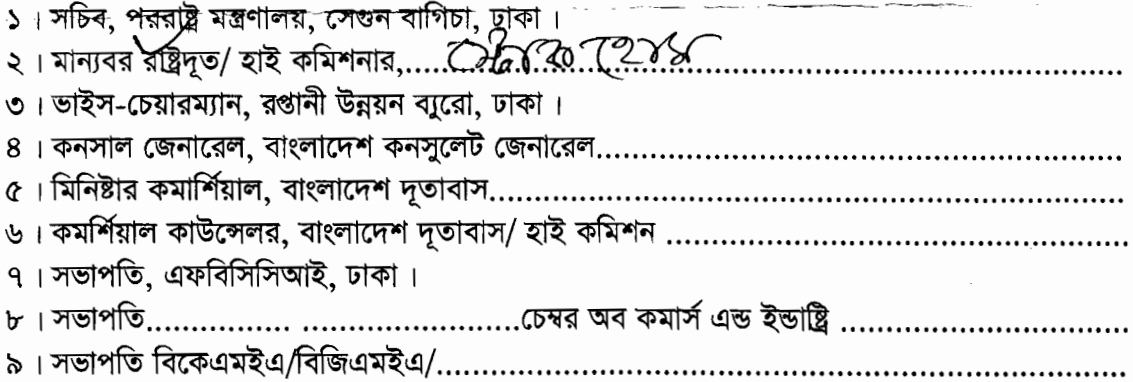 ১। সচিব, পররাষ্ট্র মন্ত্রণালয়, সেগুন বাগিচা, ঢাকা।
২। মান্যবর রাষ্ট্রদূত/ হাই কমিশনার,..............................
৩। ভাইস-চেয়ারম্যান, রপ্তানী উন্নয়ন ব্যুরো, ঢাকা।
৪। কনসাল জেনারেল, বাংলাদেশ কনসুলেট জেনারেল..............................
৫। মিনিষ্টার কমার্শিয়াল, বাংলাদেশ দূতাবাস..............................
৬। কমর্শিয়াল কাউন্সেলর, বাংলাদেশ দূতাবাস/ হাই কমিশন ..............................
৭। সভাপতি, এফবিসিসিআই, ঢাকা।
৮। সভাপতি................ ........................চেম্বর অব কমার্স এন্ড ইন্ডাষ্ট্রি ..............................
৯। সভাপতি বিকেএমইএ/বিজিএমইএ/..............................